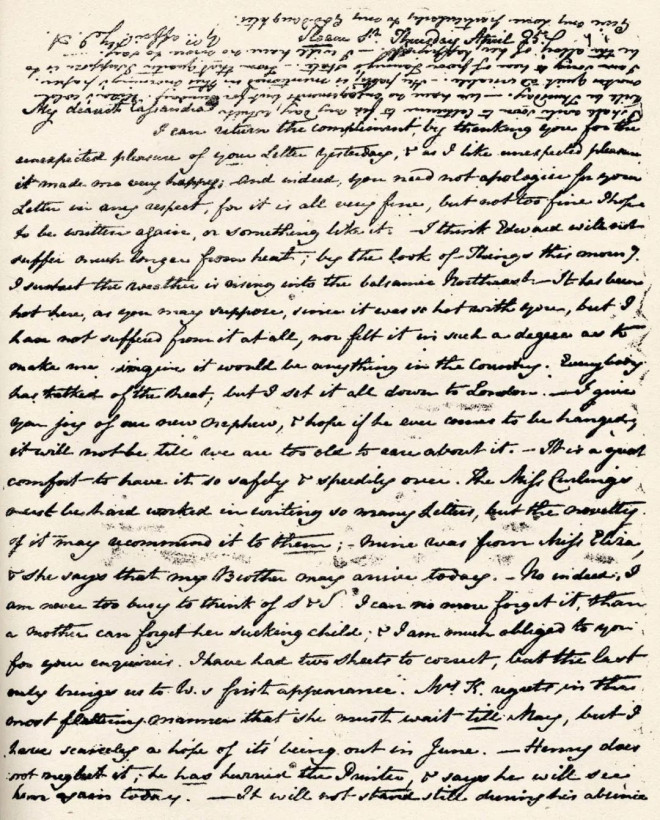 Sloane St Thursday April 25.
My dearest Cassandra
I can return the compliment, by thanking you for the
unexpected pleasure of your Letter yesterday, & as I like unexpected pleasure
it made me very happy; And indeed, you need not apologise for your
Letter in any respect, for it is all very fine, but not too fine I hope
to be written again, or something like it. —I think Edward will not
suffer much longer from heat; by the look of Things this morng.
I suspect the weather is rising into the balsamic Northeast. —It has been
hot here, as you may suppose, since it was so hot with you, but I
have not suffered from it at all, nor felt it in such a degree as to
make me imagine it would be anything in the Country. Everybody
has talked of the heat, but I set it all down to London. —I give
you joy of our new nephew, & hope if he ever comes to be hanged,
it will not be till we are too old to care about it. —It is a great
comfort to have it so safely & speedily over. The Miss Curlings
must be hard worked in writing so many Letters, but the novelty
of it may recommend it to them; —mine was from Miss Eliza,
& she says that my Brother may arrive today. —No indeed, I
am never too busy to think of S&S. I can no more forget it, than
a mother can forget her sucking child; & I am much obliged to you
for your enquiries. I have had two sheets to correct, but the last
only brings us to W.s first appearance. Mrs K. regrets in the
most flattering manner that she must wait till May, but I
have scarcely a hope of its being out in June. —Henry does
not neglect it; he has hurried the Printer, & says he will see
him again today. —It will not stand still during his absence
shall write soon to Catherine to fix my day, which
will be Thursday. —We have no engagements but for Sunday. Eliza's cold
makes quiet advisable. —Her party is mentioned in this morning's paper. —
I am sorry to hear of poor Fanny's state. —From that quarter I suppose is to
be the alloy of her happiness. —I will have no more to say. —
Yrs affecly J. A.
Give my love particularly to my God-daughter.